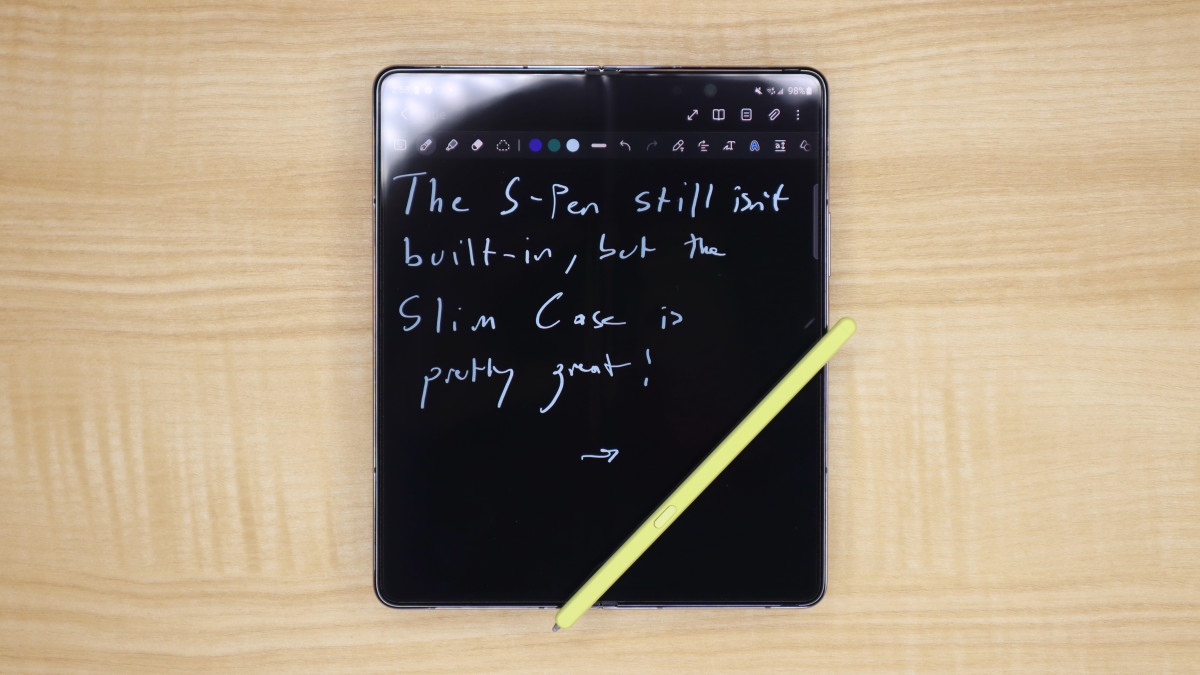 98%
The S-Pen still isn't
built-in, but the
Slim Case is
pretty great!
→